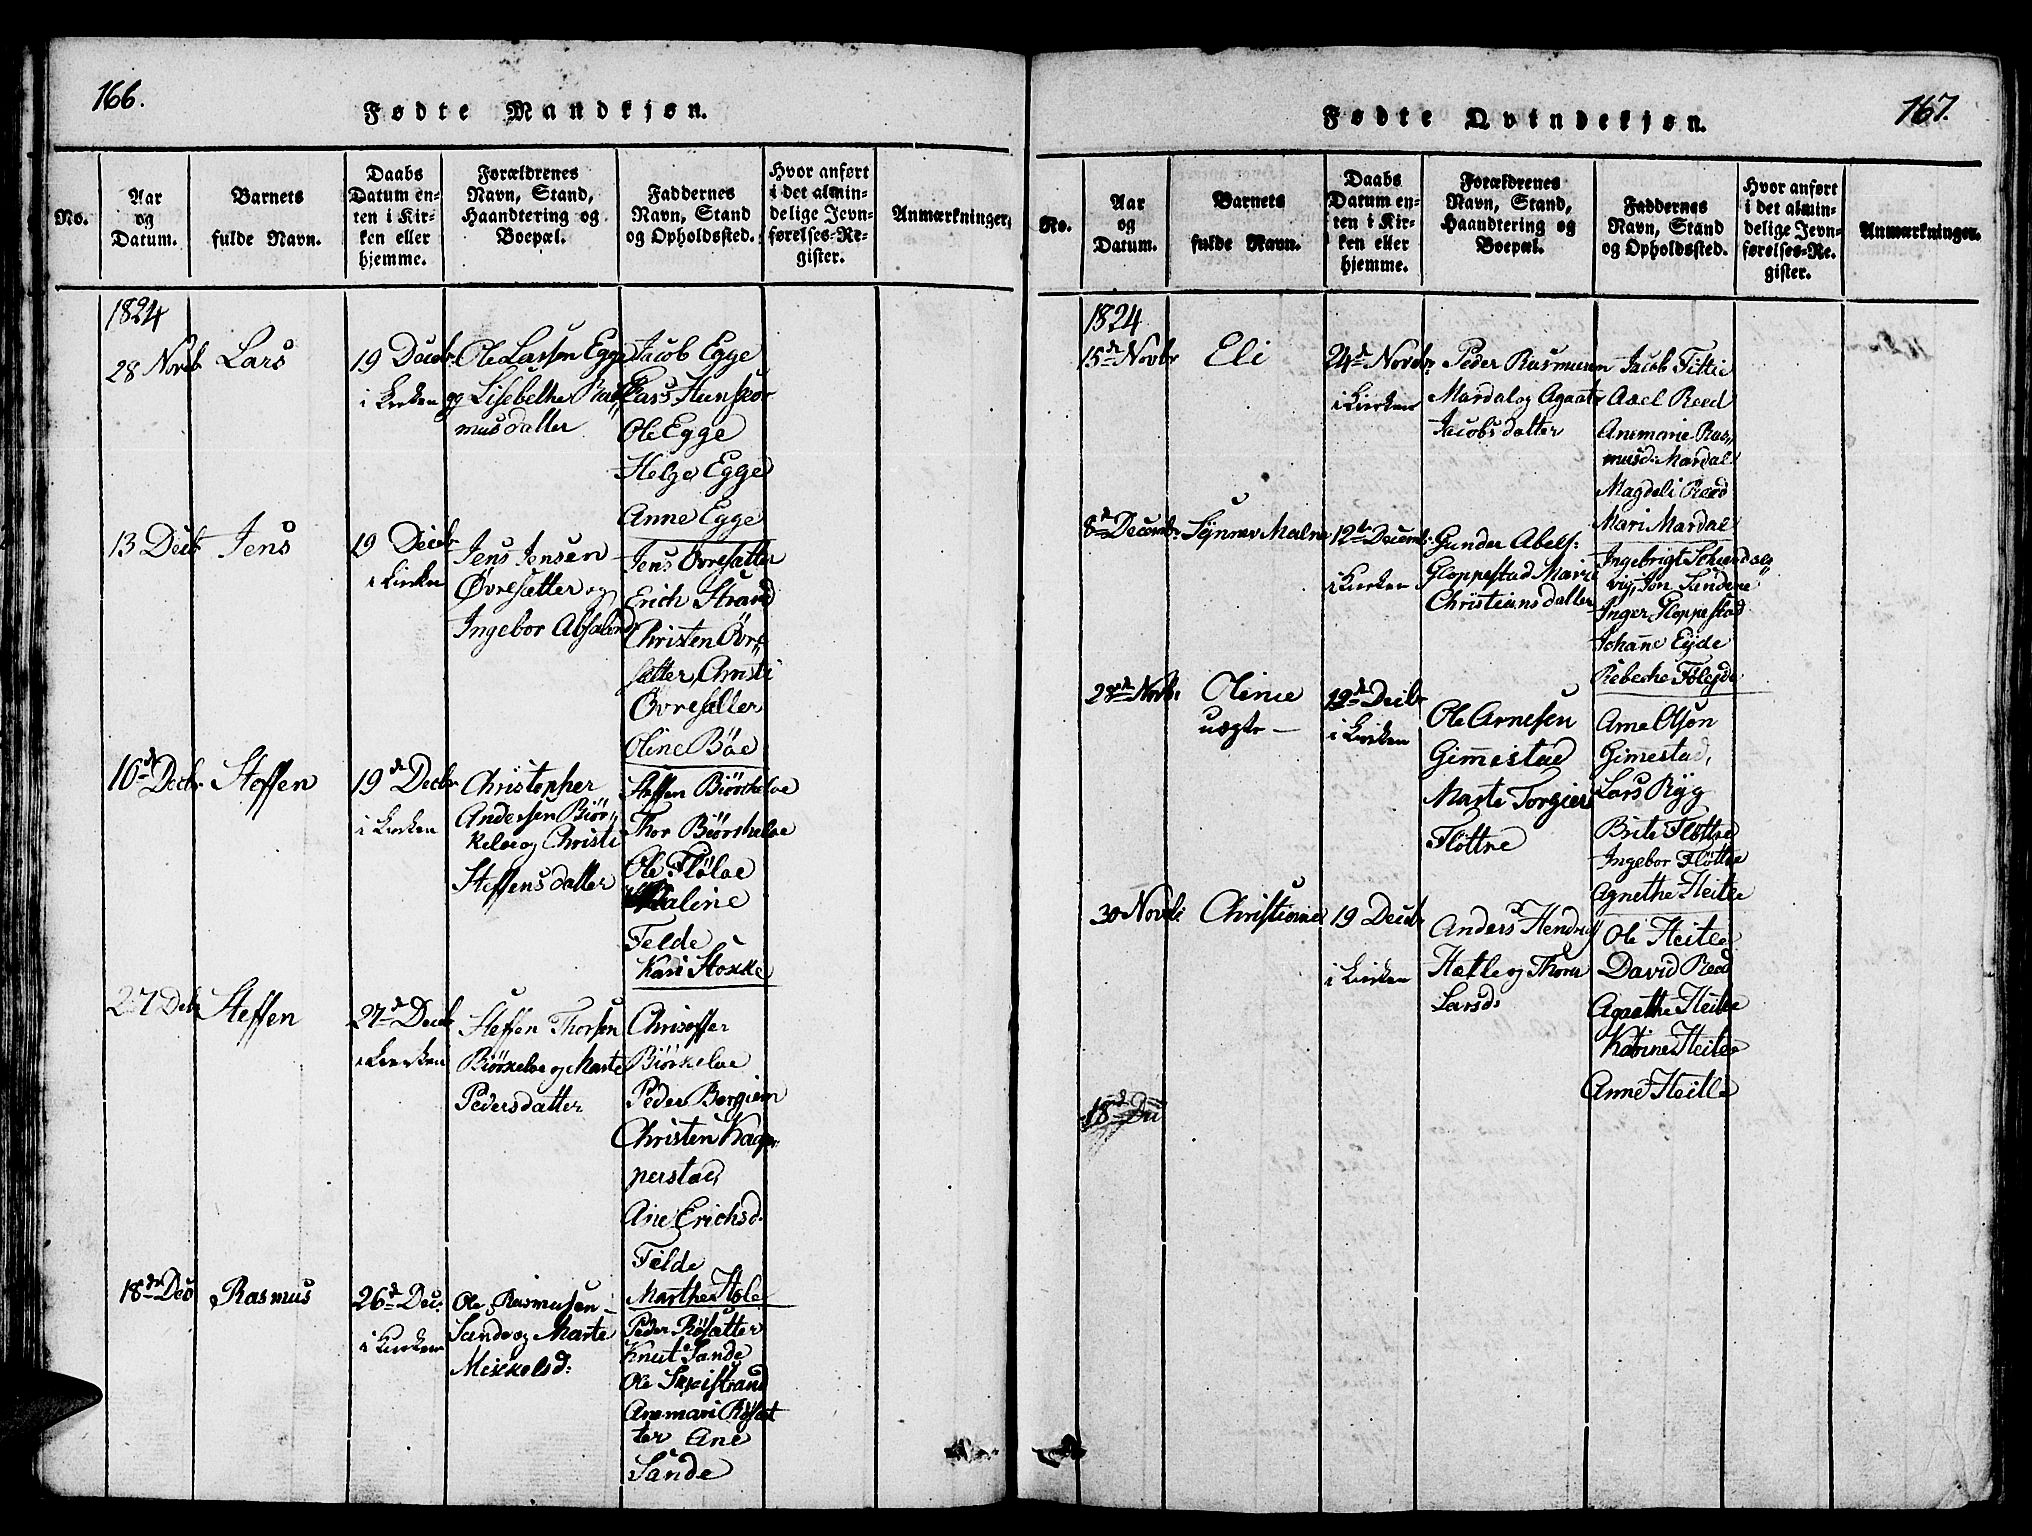 166.
Fødte Mandkjøn.
No.
Aar
og
Datum.
Barnets
fulde Navn.
Daabs
Datum en-
ten i Kir-
ken eller
hjemme.
Forældrenes
Navn, Stand,
Haandtering og
Boepæl.
Faddernes
Navn, Stand
og Opholdssted.
Hvor anført
i det almin-
delige Jevn-
førelses-Re-
gister.
Anmærkninger.
1824
28 Novb
Lars
19 Decbr
i Kirken
Ole Larsen Egge
og Lisebethe Ras
musdatter
Jacob Egge
Lars Hunskor
Ole Egge
Helge Egge
Anne Egge
13 Decb
Jens
19 Decbr
i Kirken
Jens Jensen
Øvresætter og
Ingebor Absalonsd
Jens Øvresætter
Erich Strand
Christen Øvre
sætter, Christi
Øvresætter
Oline Böe
16d Decbr
Steffen
19d Decbr
i Kirken
Christopher
Andersen Biör„
kelve og Christi
Steffens datter
Steffen Biörkelve
Thor Biörkelve
Ole Flölve
Maline
Felde
Kari Stokke
27 Decb
Steffen
27d Decbr
i Kirken
Steffen Thorsen
Biörkelve og Marte
Pedersdatter
Chrisoffer
Biörkelve
Peder Bergiem
Christen Kap„
perstad
Ane Erichsd.
Felde
Marthe Hole
18de Dec
Rasmus
26d Dec:
i Kirken
Ole Rasmusen
Sande og Marte
Mikkelsd:
Peder Rösætter
Knut Sande
Ole Skeistrand
Anemari Rösæt
ter Ane
Sande
167.
Fødte Qvindekjøn.
No.
Aar
og
Datum.
Barnets
fulde Navn.
Daabs
Datum en-
ten i Kir-
ken eller
hjemme.
Forældrenes
Navn, Stand,
Haandtering og
Boepæl.
Faddernes
Navn, Stand
og Opholdssted.
Hvor anført
i det almin-
delige Jevn-
førelses-Re-
gister.
Anmærkninger.
1824
15de Novbr
Eli
24de Novbr:
i Kirken
Peder Rasmusen
Mardal og Agaate
Jacobs datter
Jacob Fitie
Axel Reed
Anemarie Ras„
musd: Mardal
Magdeli Reed
Mari Mardal
8d Decembr
Synnev Malne
12te Decemb:
i Kirken
Gunder Abels:
Gloppestad Marie
Christians datter
Ingebrigt
vig, Jon Sandene
Inger Gloppestad
Johanne Eyde
Rebecke Föleyde
28de Novb:
Oline
uægte
19de Decbr
i Kirken
Ole Arnesen
Gimmestad
Marte Torgiers
Flöttre
Arne Olson
Gimmestad,
Lars Ryg
Brite Flöttre
Ingebor Flöttre
Agnethe Heitle
30 Novbr
Christiane
19 Decbr
i Kirken
Anders Hendrics
Hætle og Thora
Larsd:
Ole Heitle
David Reed
Agaathe Heitle
Katrine Heitle
Anne Heitle
18de De